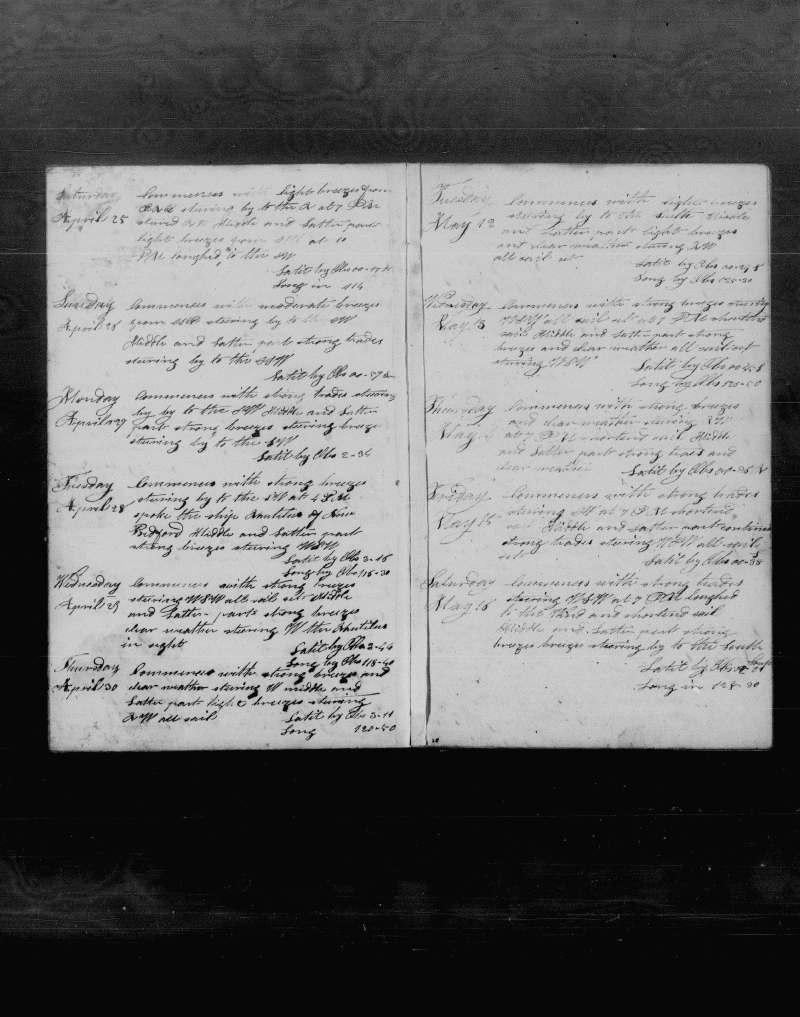 Saturday Commences with light breezes from
April 25 stearing by to the N at 7 PM
steard NW Middle and Latter part
light breezes from at 10
PM loughed to the SW
Latit by Obs 00-
Long in 114
Sunday Commences with moderate breezes
April 26 from stearing by to the SW
Middle and Latter part strong trades
stearing by to the SSW
Latit by Obs 00-57
Monday Commences with strong trades stearing
April 27 by by to the SW Middle and Latter
part strong breezes stearing breeze
stearing by to the SW
Latit by Obs 2-36
Tuesday Commences with strong breezes
April 28 stearing by to the SW at 4 PM
spoke the ship Nautilus of New
Bedford Middle and Latter part
strong breezes stearing WSW
Latit by Obs 3-16
Long by Obs 116-30
Wednesday Commences with strong breezes
April 29 stearing WSW all sail set Middle
and Latter part strong breezes
clear weather stearing W the Nautilus
in sight Latit by Obs 3-44
Long by Obs 118-40
Thursday Commences with strong breezes and
April 30 clear weather stearing W middle and
Latter part light breezes stearing
NW all sail Latit by Obs 3-11
Long 120-50
Tuesday Commences with light breezes
May 12 stearing by to the South Middle
and Latter part light breezes
and clear weather stearing NW
all sail set Latit by Obs 00-
Long by Obs
Wednesday Commences with strong breezes stearing
May 13 WSW all sail set at 7 PM shortend
sail Middle and Latter part strong
breezes and clear weather all sail set
stearing WSW Latit by Obs 00
Long by Obs 125-50
Thursday Commences with strong breezes
May and clear weather stearing
at 7 PM shortend sail Middle
and Latter part strong trads and
clear weather Latit by Obs 00-36
Friday Commences with strong trades
May 15 stearing SW at 7 PM shortend
sail Middle and Latter part continus
strong trades stearing WSW all sail
set Latit by Obs 00-38
Saturday Commences with strong trades
May 16 stearing WSW at 7 PM loughed
to the Wind and shortend sail
Middle and Latter part strong
breezes breezes stearing by to the South
Latit by Obs South
Long in 128-30